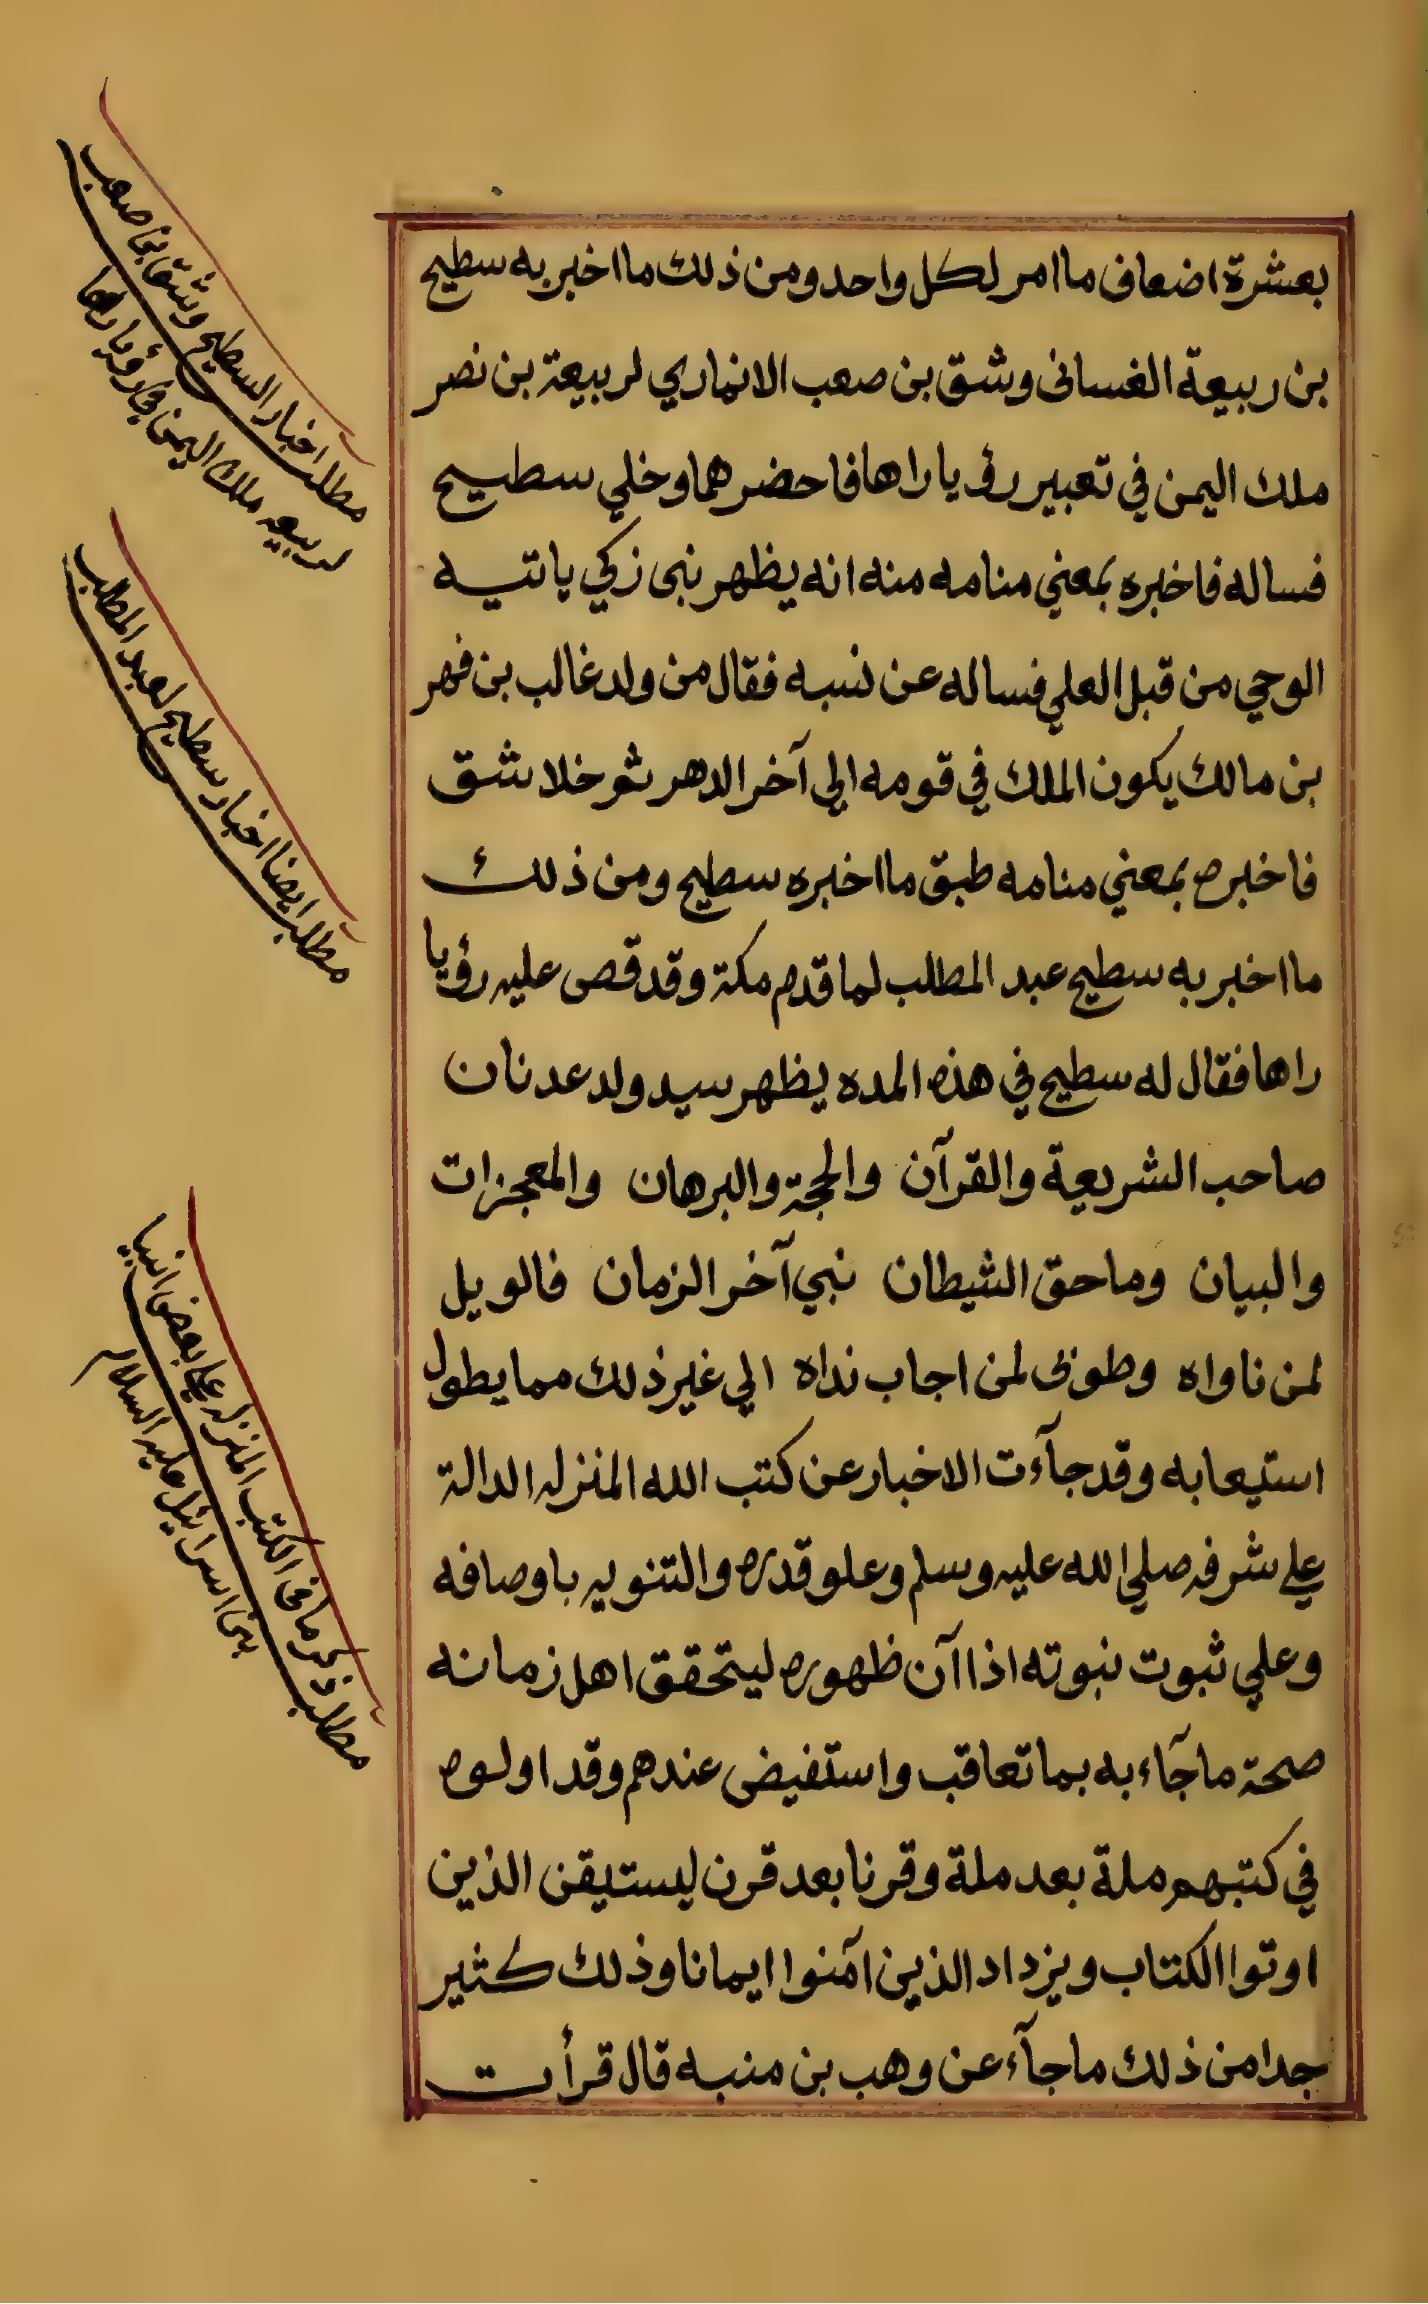 بعشرة اضعاف ما امر لكل واحد ومن ذلك ما اخبر به سطيح
بن ربيعة الغسانى وشق بن صعب الانماري لربيعة بن نصر
ملك اليمن في تعبير رؤيا راها فاحضرهما وخلي سطيح
فساله فاخبره بمعني منامه منه انه يظهر نبى زكي ياتيه
الوحي من قبل العلي فساله عن نسبه فقال من ولد غالب بن فهر
بن مالك يكون الملك في قومه الي آخر الدهر ثم خلا شق
فاخبره بمعني منامه طبق ما اخبره سطيح ومن ذلك
ما اخبر به سطيح عبد المطلب لما قدم مكة وقد قص عليه رؤيا
راها فقال له سطيح في هذه المده يظهر سيد ولد عدنان
صاحب الشريعة والقرآن والحجة والبرهان والمعجزات
والبيان وماحق الشيطان نبي آخر الزمان فالويل
لمن ناواه وطوبى لمن اجاب نداه الي غير ذلك مما يطول
استيعابه وقد جآءت الاخبار عن كتب الله المنزله الدالة
علي شرفه صلي الله عليه وسلم وعلو قدره والتنويه باوصافه
وعلي ثبوت نبوته اذا آن ظهوره ليتحقق اهل زمانه
صحة ما جآء به بما تعاقب واستفيض عندهم وقد اولوه
في كتبهم ملة بعد ملة وقرنا بعد قرن ليستيقن الذين
اوتوا الكتاب ويزداد الذين آمنوا ايمانا وذلك كثير
جدا من ذلك ما جآء عن وهب بن منبه قال قرأت
مطلب اخبار السطيح وشق بن صعب
لربيعه ملك اليمن في رؤيا رها
مطلب ايضا اخبار سطيح لعبد المطلب
مطلب ذكر ما فى الكتب المنزله علي بعض انبيا
بنى اسرائيل عليه السلام